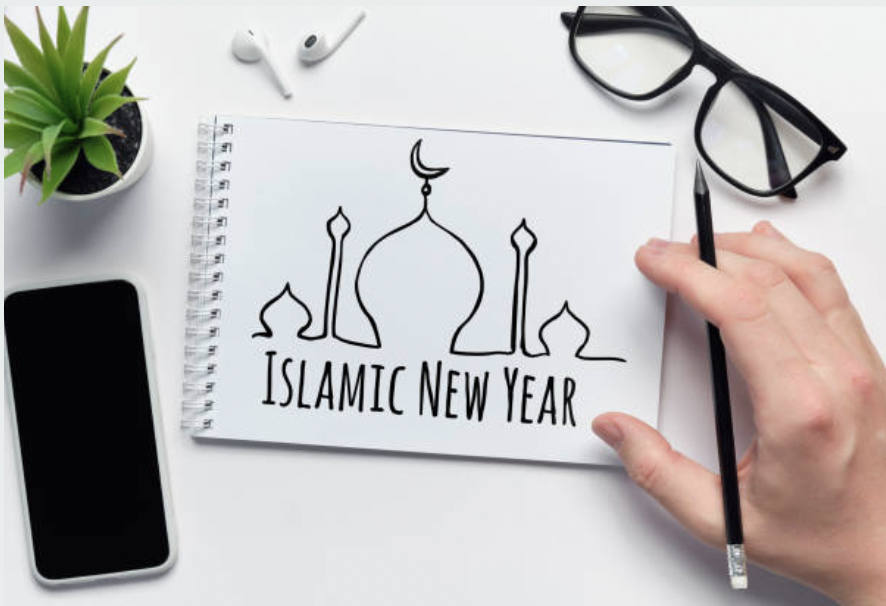 Islamic New Year